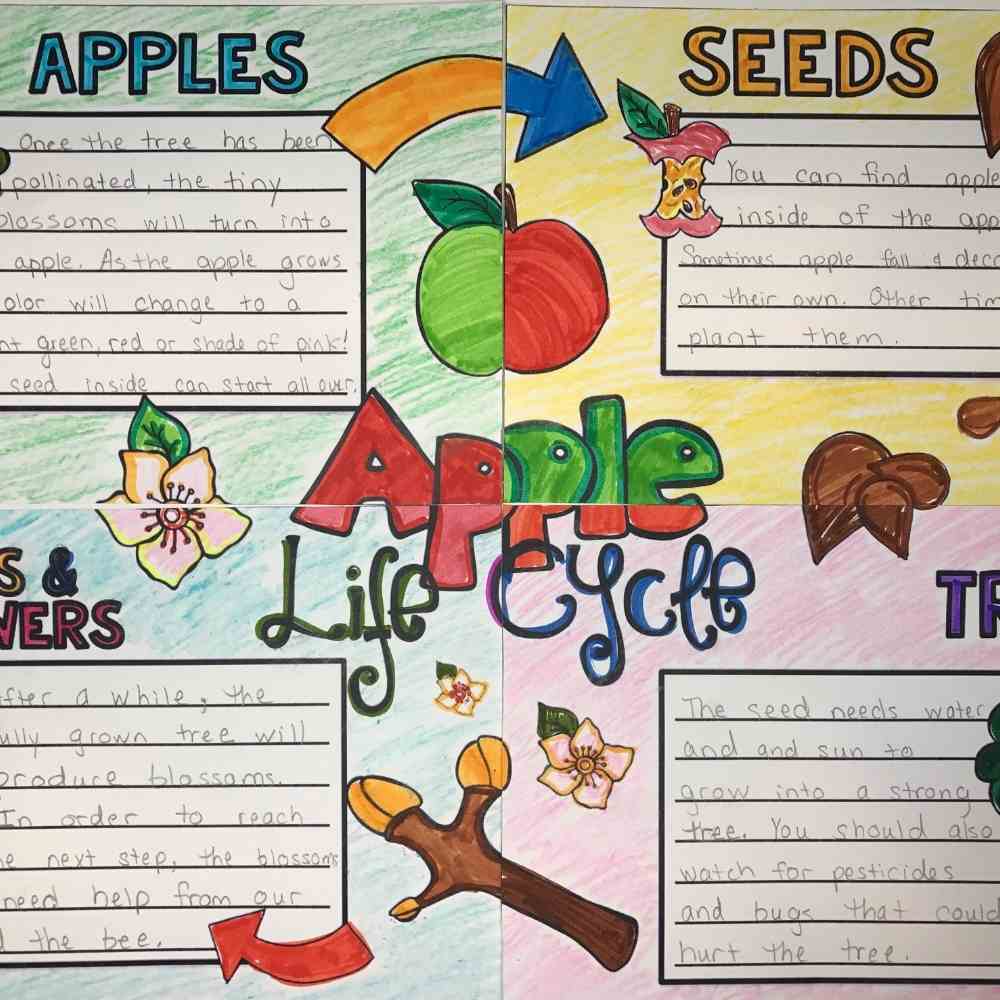 APPLES
Once the tree has been
pollinated, the tiny
blossoms will turn into
apple. As the apple grows
olor will change to a
nt green, red or shade of pink!
seed inside can start all over.
SEEDS
You can find apple
inside of the app
Sometimes apple fall & deca
on their own. Other tim
plant them.
Apple
Life Cycle
S &
WERS
after a while, the
ully grown tree will
produce blossoms.
In order to reach
he next step, the blossoms
need help from our
d the bee.
TR
The seed needs water
and and sun to
grow into a strong
tree. You should also
watch for pesticides
and bugs that could
hurt the tree.